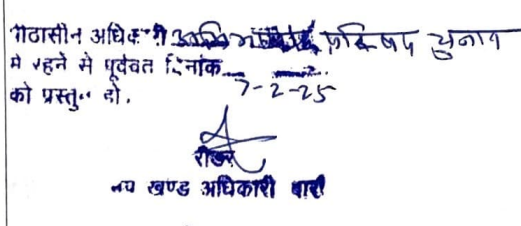 पीठासीन अधिकारी अभिभाषक परिषद चुनाव
मे रहने से पूर्ववत दिनांक
7-2-25
को प्रस्तुत हो.
रीडर
उप खण्ड अधिकारी बारी